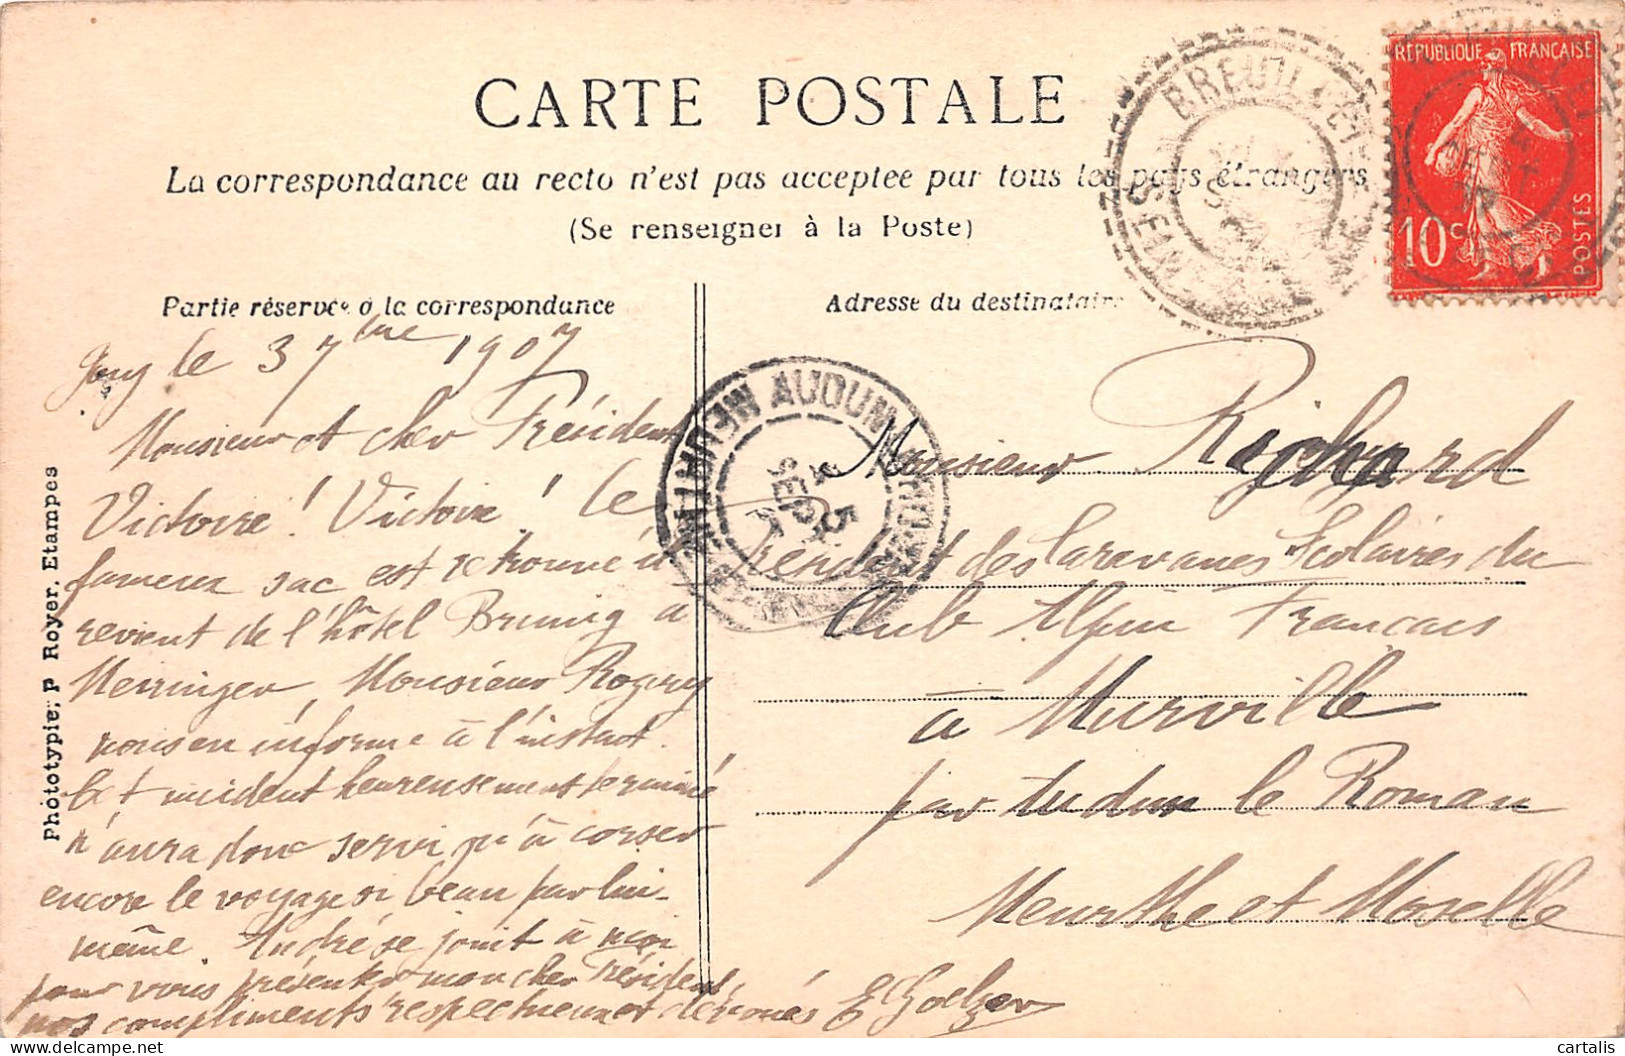 CARTE POSTALE
La correspondance au recto n'est pas acceptée par tous les pays étrangers
(Se renseigner à la Poste)
Partie réservée à la correspondance
Adresse du destinataire
RÉPUBLIQUE FRANÇAISE
10c
POSTES
BREUILLET
AUDUN
5
SEPT
Phototypie, P Royer, Etampes
le 3 7bre 1907
Monsieur et cher Président
Victoire! Victoire! le
fameux sac est retrouvé il
revient de l'hôtel Brunig à
Meiringen, Monsieur
nous en informe à l'instant.
Cet incident heureusement terminé
n'aura donc servi qu'à corser
encore le voyage si beau par lui-
même. André se joint à moi
pour vous présenter mon cher Président
nos compliments respectueux et dévoués
Monsieur Richard
Président des Caravanes Scolaires du
Club Alpin Français
à Murville
par Audun le Roman
Meurthe et Moselle
cartalis